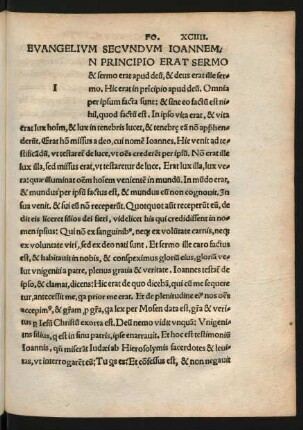 FO. XCIIII.
EVANGELIVM SECVNDVM IOANNEM.
I
N PRINCIPIO ERAT SERMO
& sermo erat apud deū, & deus erat ille ser
mo. Hic erat in prīcipio apud deū. Omnia
per ipsum facta sunt: & sine eo factū est ni
hil, quod factū est. In ipso vita erat, & vita
erat lux hoīm, & lux in tenebris lucet, & tenebrę eā nō apphen
derūt. Erat hō missus a deo, cui nomē Ioannes. Hic venit ad te
stificādū, vt testaret̄ de luce, vt oēs crederēt per ipsū. Nō erat ille
lux illa, sed missus erat, vt testaretur de luce. Erat lux illa, lux vera
quae illuminat oēm hoīem venientē in mundū. In mūdo erat,
& mundus per ipsum factus est, & mundus eū non cognouit. In
sua venit, & sui eū nō receperūt. Quotquot aūt receperūt eū, de
dit eis liceret filios dei fieri, videlicet his qui credidissent in no
men ipsius: Qui nō ex sanguinib⁹, neqꝫ ex volūtate carnis, neqꝫ
ex voluntate viri, sed ex deo nati sunt. Et sermo ille caro factus
est, & habitauit in nobis, & conspeximus gloriā eius, gloriā ve
lut vnigeniti a patre, plenus gratia & veritate. Ioannes testat̄ de
ipso, & clamat, dicens: Hic erat de quo dicebā, qui cū me sequere
tur, antecessit me, qa prior me erat. Et de plenitudine ei⁹ nos oēs
accepim⁹, & grām, p grā, qa lex per Mosen data est, grā, & veri
tas p Iesū Christū exorta est. Deū nemo vidit vnquā: Vnigeni
tus filius, q est in sinu patris, ipse enarrauit. Et hoc est testimoniū
Ioannis, qn̄ miserūt Iudæi ab Hierosolymis sacerdotes & leui
tas, vt interrogarēt eū: Tu qs es: Et cōfessus est, & non negauit